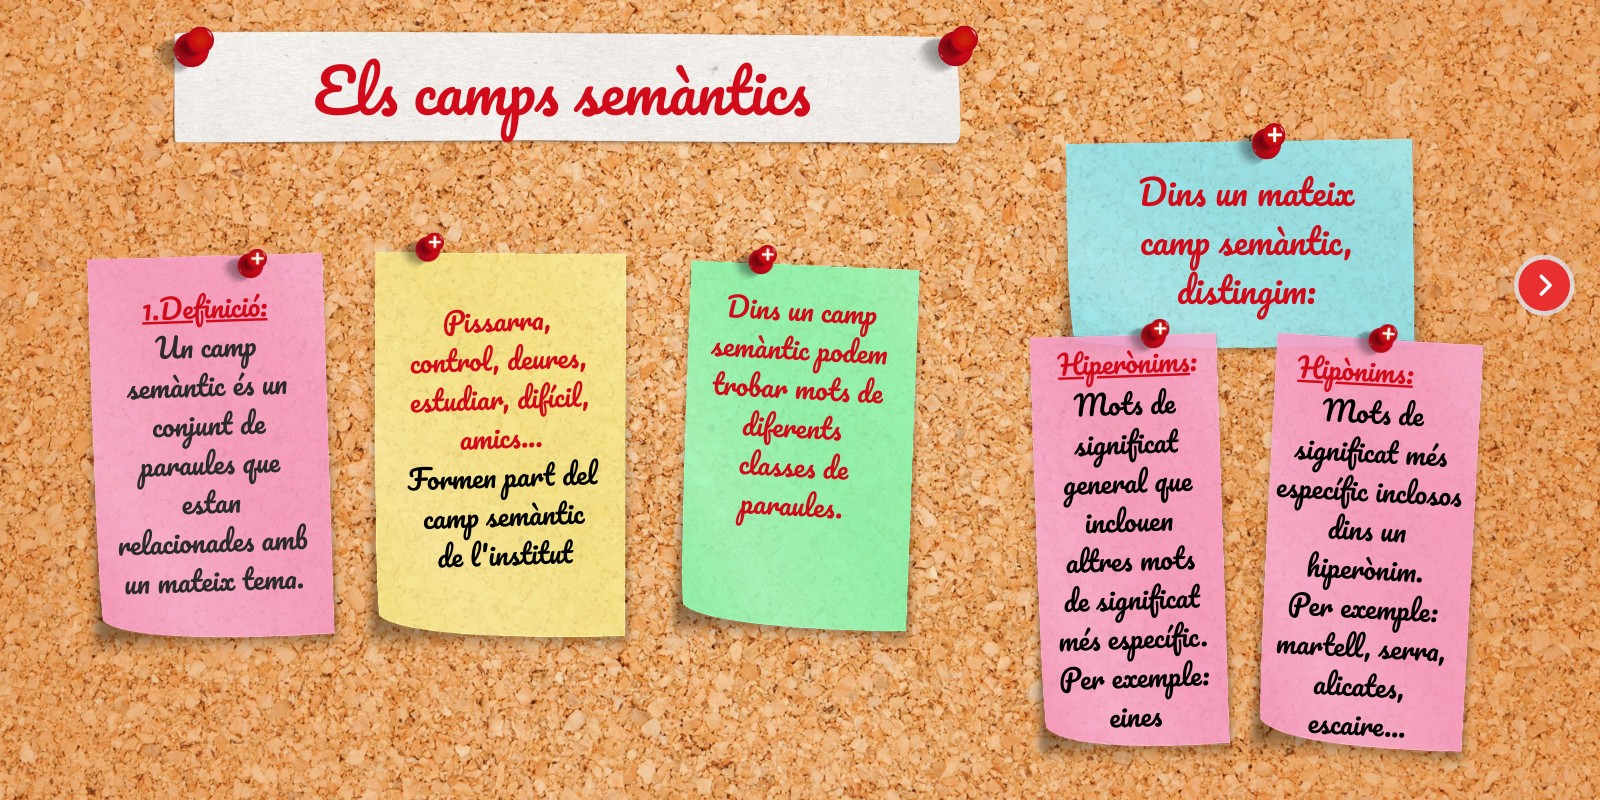 Els camps semàntics
1.Definició:
Un camp
semàntic és un
conjunt de
paraules que
estan
relacionades amb
un mateix tema.
Pissarra,
control, deures,
estudiar, difícil,
amics...
Formen part del
camp semàntic
de l'institut
Dins un camp
semàntic podem
trobar mots de
diferents
classes de
paraules.
Dins un mateix
camp semàntic,
distingim:
Hiperònims:
Mots de
significat
general que
inclouen
altres mots
de significat
més específic.
Per exemple:
eines
Hipònims:
Mots de
significat més
específic inclosos
dins un
hiperònim.
Per exemple:
martell, serra,
alicates,
escaire...